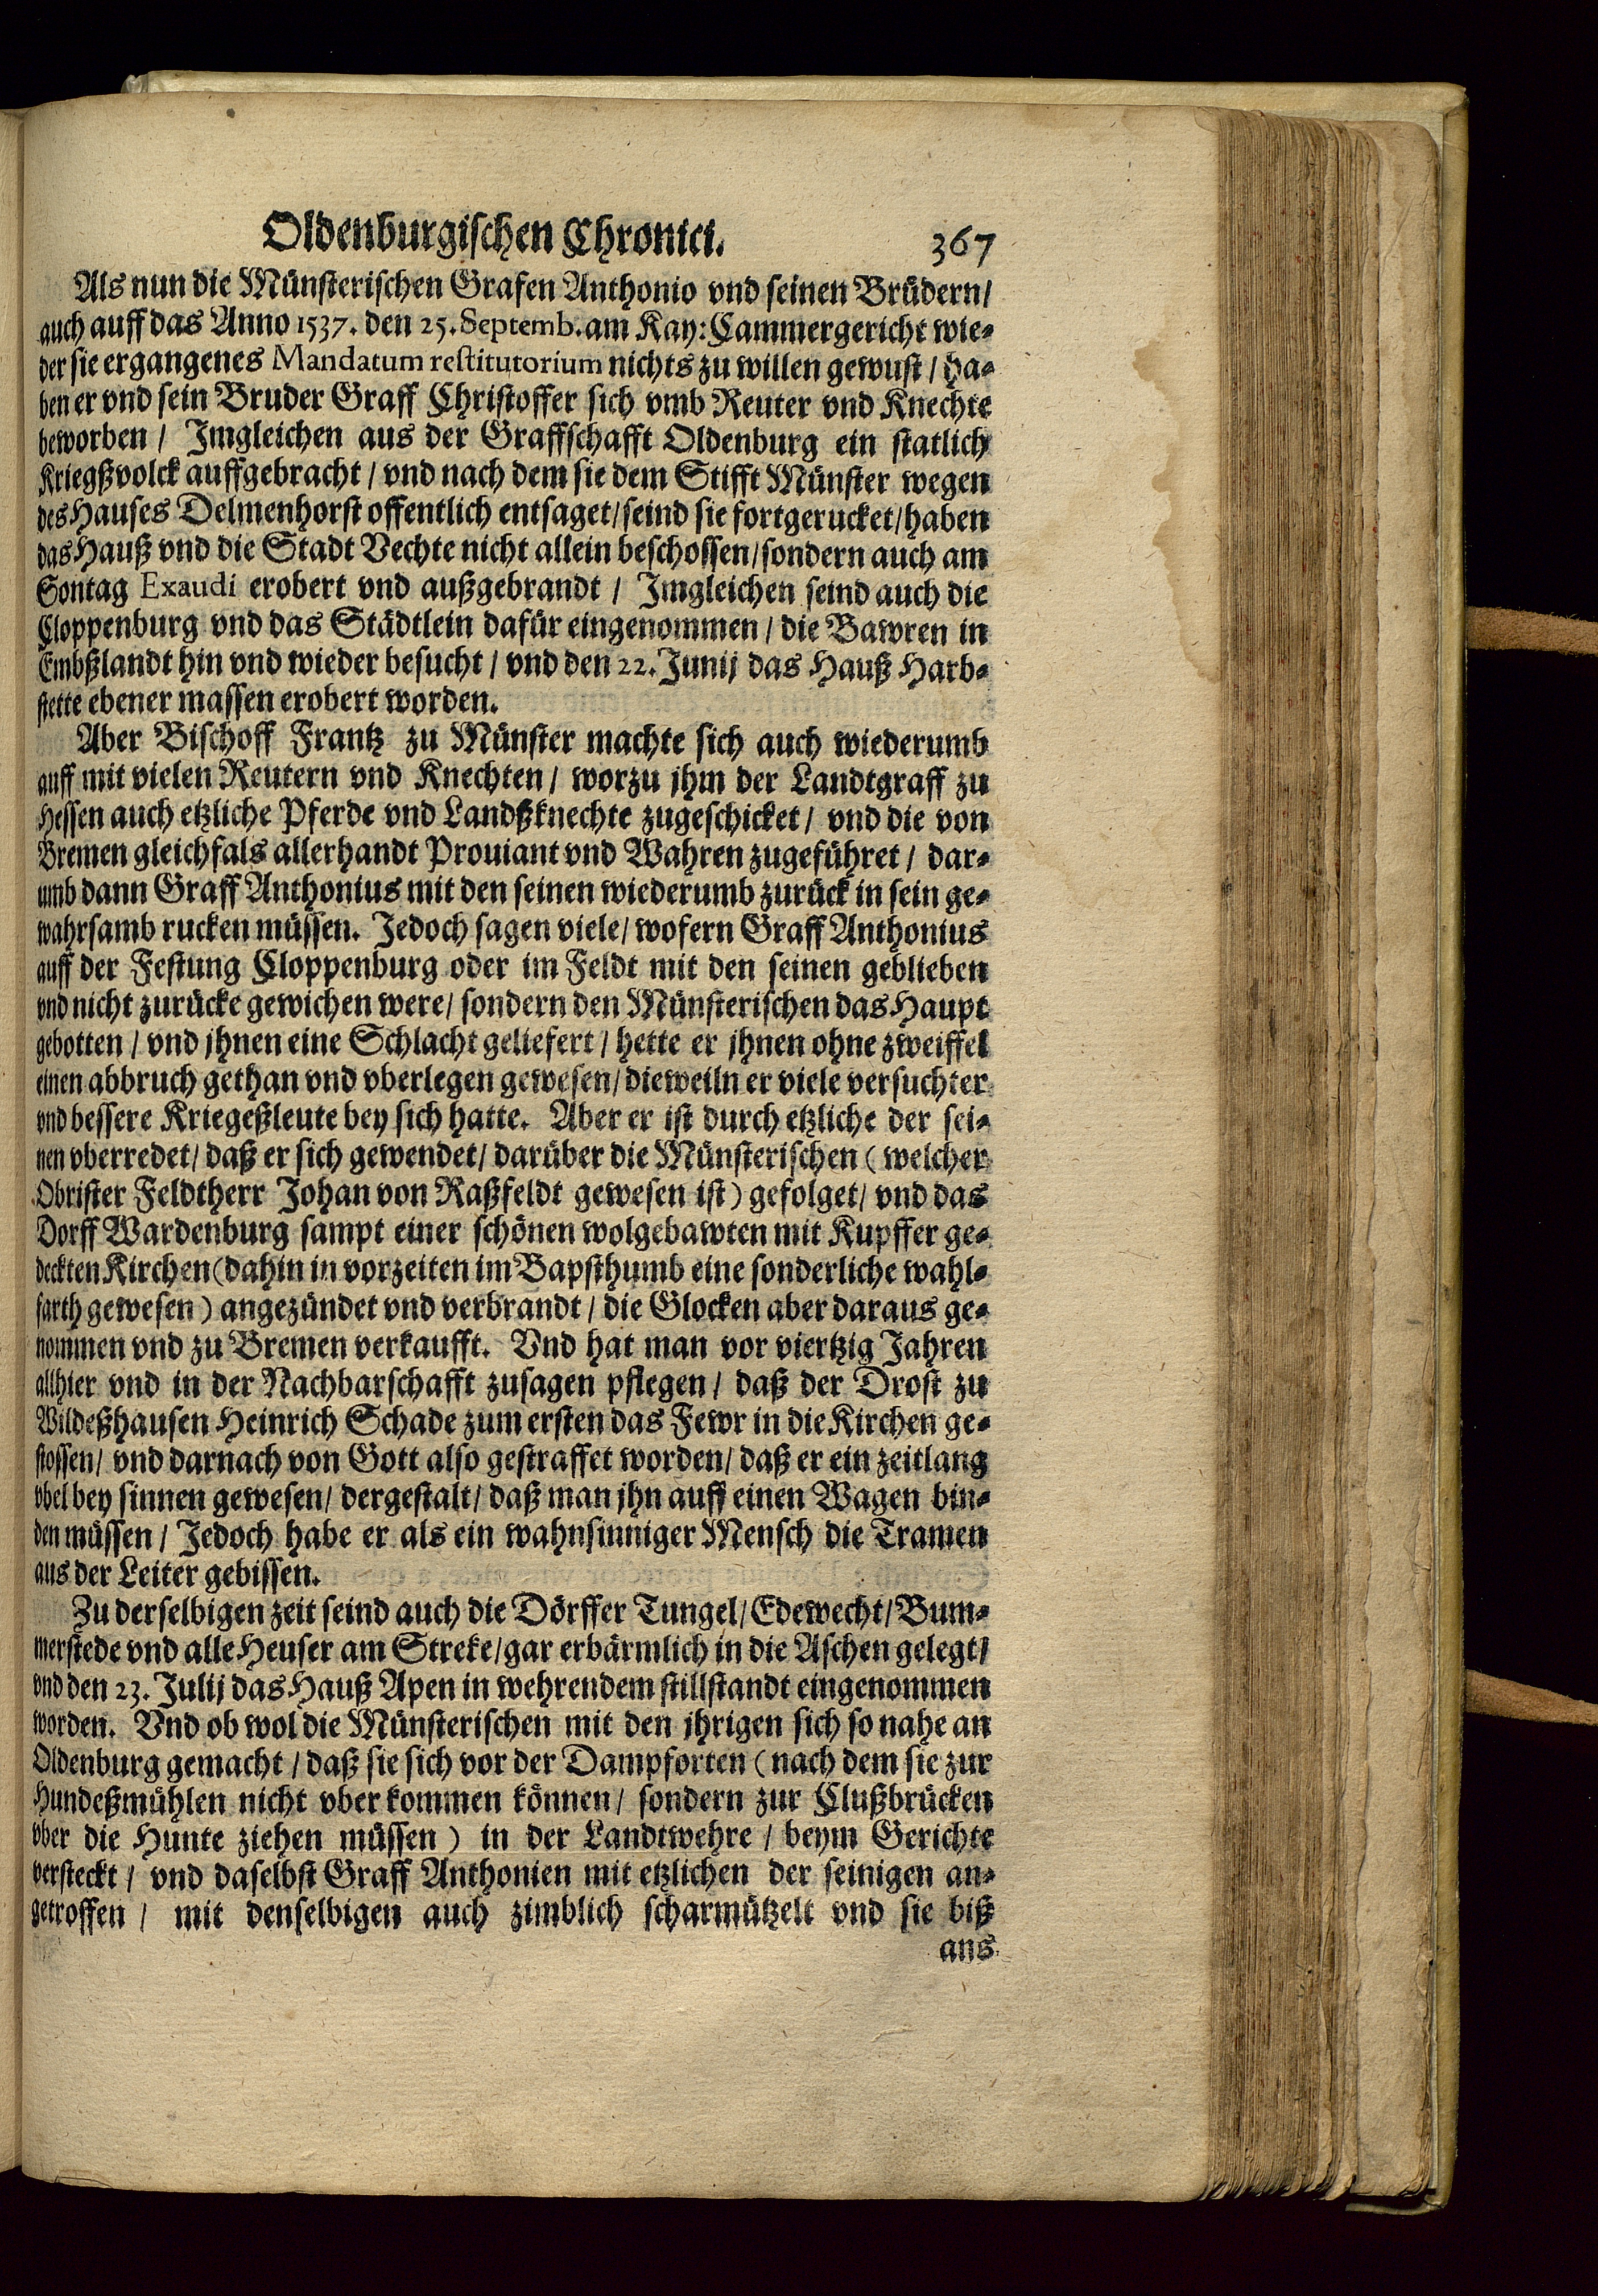 Oldenburgischen Chronici. 367
Als nun die Münsterischen Grafen Anthonio vnd seinen Brüdern/
auch auff das Anno 1537. den 25. Septemb. am Kay: Cammergericht wie-
der sie ergangenes Mandatum restitutorium nichts zu willen gewust/ ha-
ben er vnd sein Bruder Graff Christoffer sich vmb Reuter vnd Knechte
beworben/ Imgleichen aus der Graffschafft Oldenburg ein statlich
Kriegßvolck auffgebracht/ vnd nach dem sie dem Stifft Münster wegen
des Hauses Delmenhorst offentlich entsaget/ seind sie fortgerucket/ haben
das Hauß vnd die Stadt Vechte nicht allein beschossen/ sondern auch am
Sontag Exaudi erobert vnd außgebrandt/ Imgleichen seind auch die
Cloppenburg vnd das Städtlein dafür eingenommen/ die Bawren in
Embßlandt hin vnd wieder besucht/ vnd den 22. Junij das Hauß Harb-
stette ebener massen erobert worden.
Aber Bischoff Frantz zu Münster machte sich auch wiederumb
auff mit vielen Reutern vnd Knechten/ worzu jhm der Landtgraff zu
Hessen auch etzliche Pferde vnd Landßknechte zugeschicket/ vnd die von
Bremen gleichfals allerhandt Prouiant vnd Wahren zugeführet/ dar-
umb dann Graff Anthonius mit den seinen wiederumb zurück in sein ge-
wahrsamb rucken müssen. Jedoch sagen viele/ wofern Graff Anthonius
auff der Festung Cloppenburg oder im Feldt mit den seinen geblieben
vnd nicht zurücke gewichen were/ sondern den Münsterischen das Haupt
gebotten/ vnd jhnen eine Schlacht geliefert/ hette er jhnen ohne zweiffel
einen abbruch gethan vnd vberlegen gewesen/ dieweiln er viele versuchter
vnd bessere Kriegeßleute bey sich hatte. Aber er ist durch etzliche der sei-
nen vberredet/ daß er sich gewendet/ darüber die Münsterischen (welcher
Obrister Feldtherr Johan von Raßfeldt gewesen ist) gefolget/ vnd das
Dorff Wardenburg sampt einer schönen wolgebawten mit Kupffer ge-
deckten Kirchen (dahin in vorzeiten im Bapsthumb eine sonderliche wahl-
farth gewesen) angezündet vnd verbrandt/ die Glocken aber daraus ge-
nommen vnd zu Bremen verkaufft. Vnd hat man vor viertzig Jahren
allhier vnd in der Nachbarschafft zusagen pflegen/ daß der Drost zu
Wildeßhausen Heinrich Schade zum ersten das Fewr in die Kirchen ge-
stossen/ vnd darnach von Gott also gestraffet worden/ daß er ein zeitlang
vbel bey sinnen gewesen/ dergestalt/ daß man jhn auff einen Wagen bin-
den müssen/ Jedoch habe er als ein wahnsinniger Mensch die Tramen
aus der Leiter gebissen.
Zu derselbigen zeit seind auch die Dörffer Tungel/ Edewecht/ Bum-
merstede vnd alle Heuser am Streke/ gar erbärmlich in die Aschen gelegt/
vnd den 23. Julij das Hauß Apen in wehrendem stillstandt eingenommen
worden. Vnd ob wol die Münsterischen mit den jhrigen sich so nahe an
Oldenburg gemacht/ daß sie sich vor der Dampforten (nach dem sie zur
Hundeßmühlen nicht vber kommen können/ sondern zur Clußbrücken
vber die Hunte ziehen müssen) in der Landtwehre/ beym Gerichte
versteckt/ vnd daselbst Graff Anthonien mit etzlichen der seinigen an-
getroffen/ mit denselbigen auch zimblich scharmützelt vnd sie biß
ans